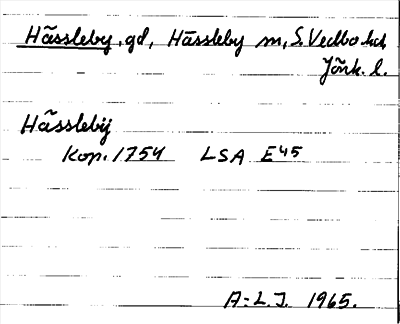 Hässleby, gd, Hässleby sn, S. Vedbo hd,
Jönk. l.
Hässlebij
Kop. 1754 LSA E45
A-L.J. 1965.